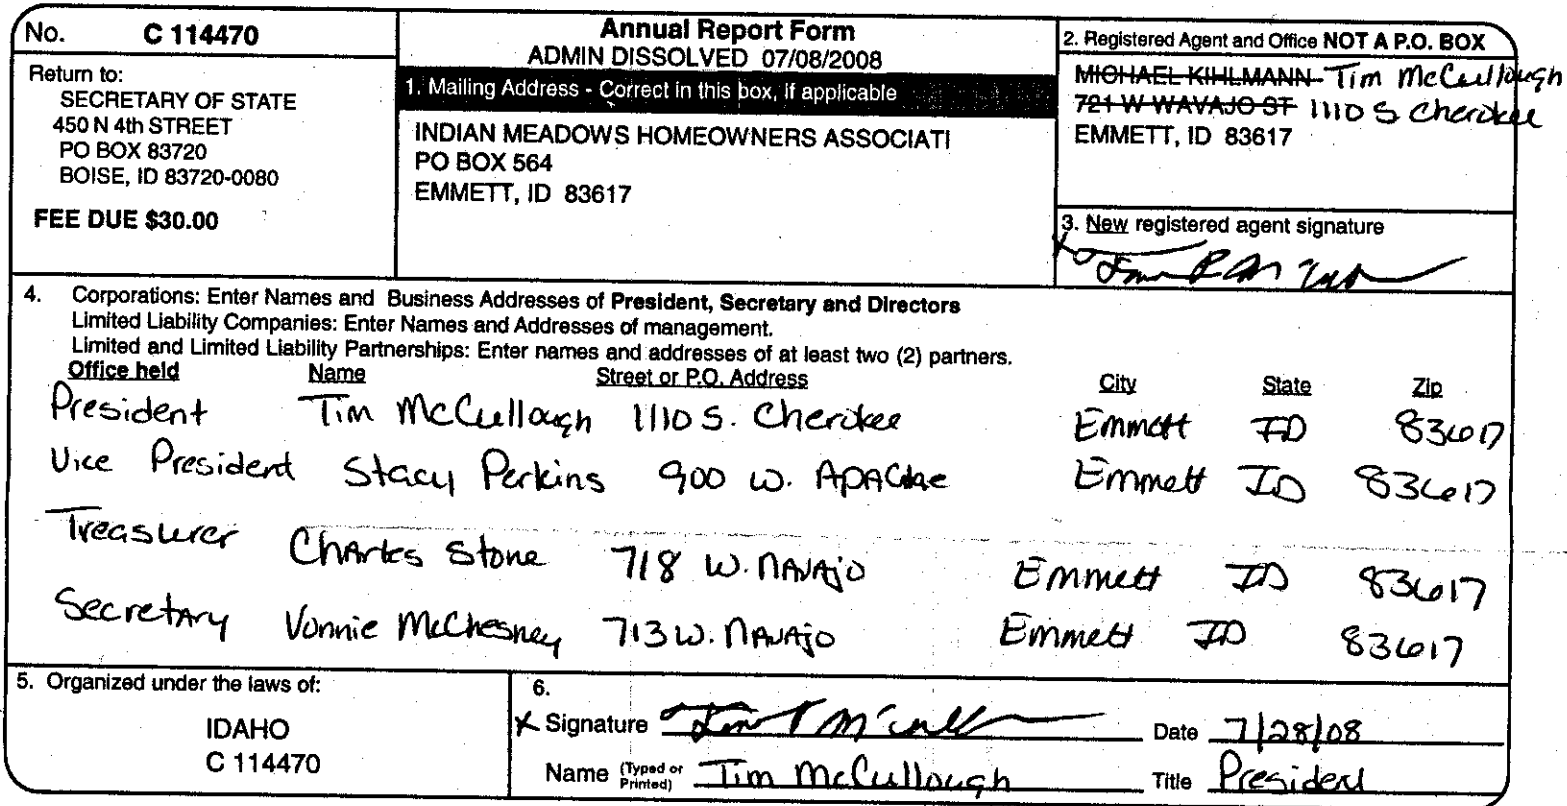 No. C 114470
Return to:
SECRETARY OF STATE
450 N 4th STREET
PO BOX 83720
BOISE, ID 83720-0080
FEE DUE $30.00
Annual Report Form
ADMIN DISSOLVED 07/08/2008
1. Mailing Address - Correct in this box, if applicable
INDIAN MEADOWS HOMEOWNERS ASSOCIATI
PO BOX 564
EMMETT, ID 83617
2. Registered Agent and Office NOT A P.O. BOX
MICHAEL KIHLMANN Tim McCullough
721 W WAVAJO ST 1110 S Cherokee
EMMETT, ID 83617
3. New registered agent signature
4. Corporations: Enter Names and Business Addresses of President, Secretary and Directors
Limited Liability Companies: Enter Names and Addresses of management.
Limited and Limited Liability Partnerships: Enter names and addresses of at least two (2) partners.
Office held Name Street or P.O. Address City State Zip
President Tim McCullough 1110 S. Cherokee Emmett ID 83617
Vice President Stacy Perkins 900 W. Apache Emmett ID 83617
Treasurer Charles Stone 718 W. Navajo Emmett ID 83617
Secretary Vonnie McChesney 713 W. Navajo Emmett ID 83617
5. Organized under the laws of:
IDAHO
C 114470
6.
X Signature Date 7/28/08
Name (Typed or Printed) Tim McCullough Title President